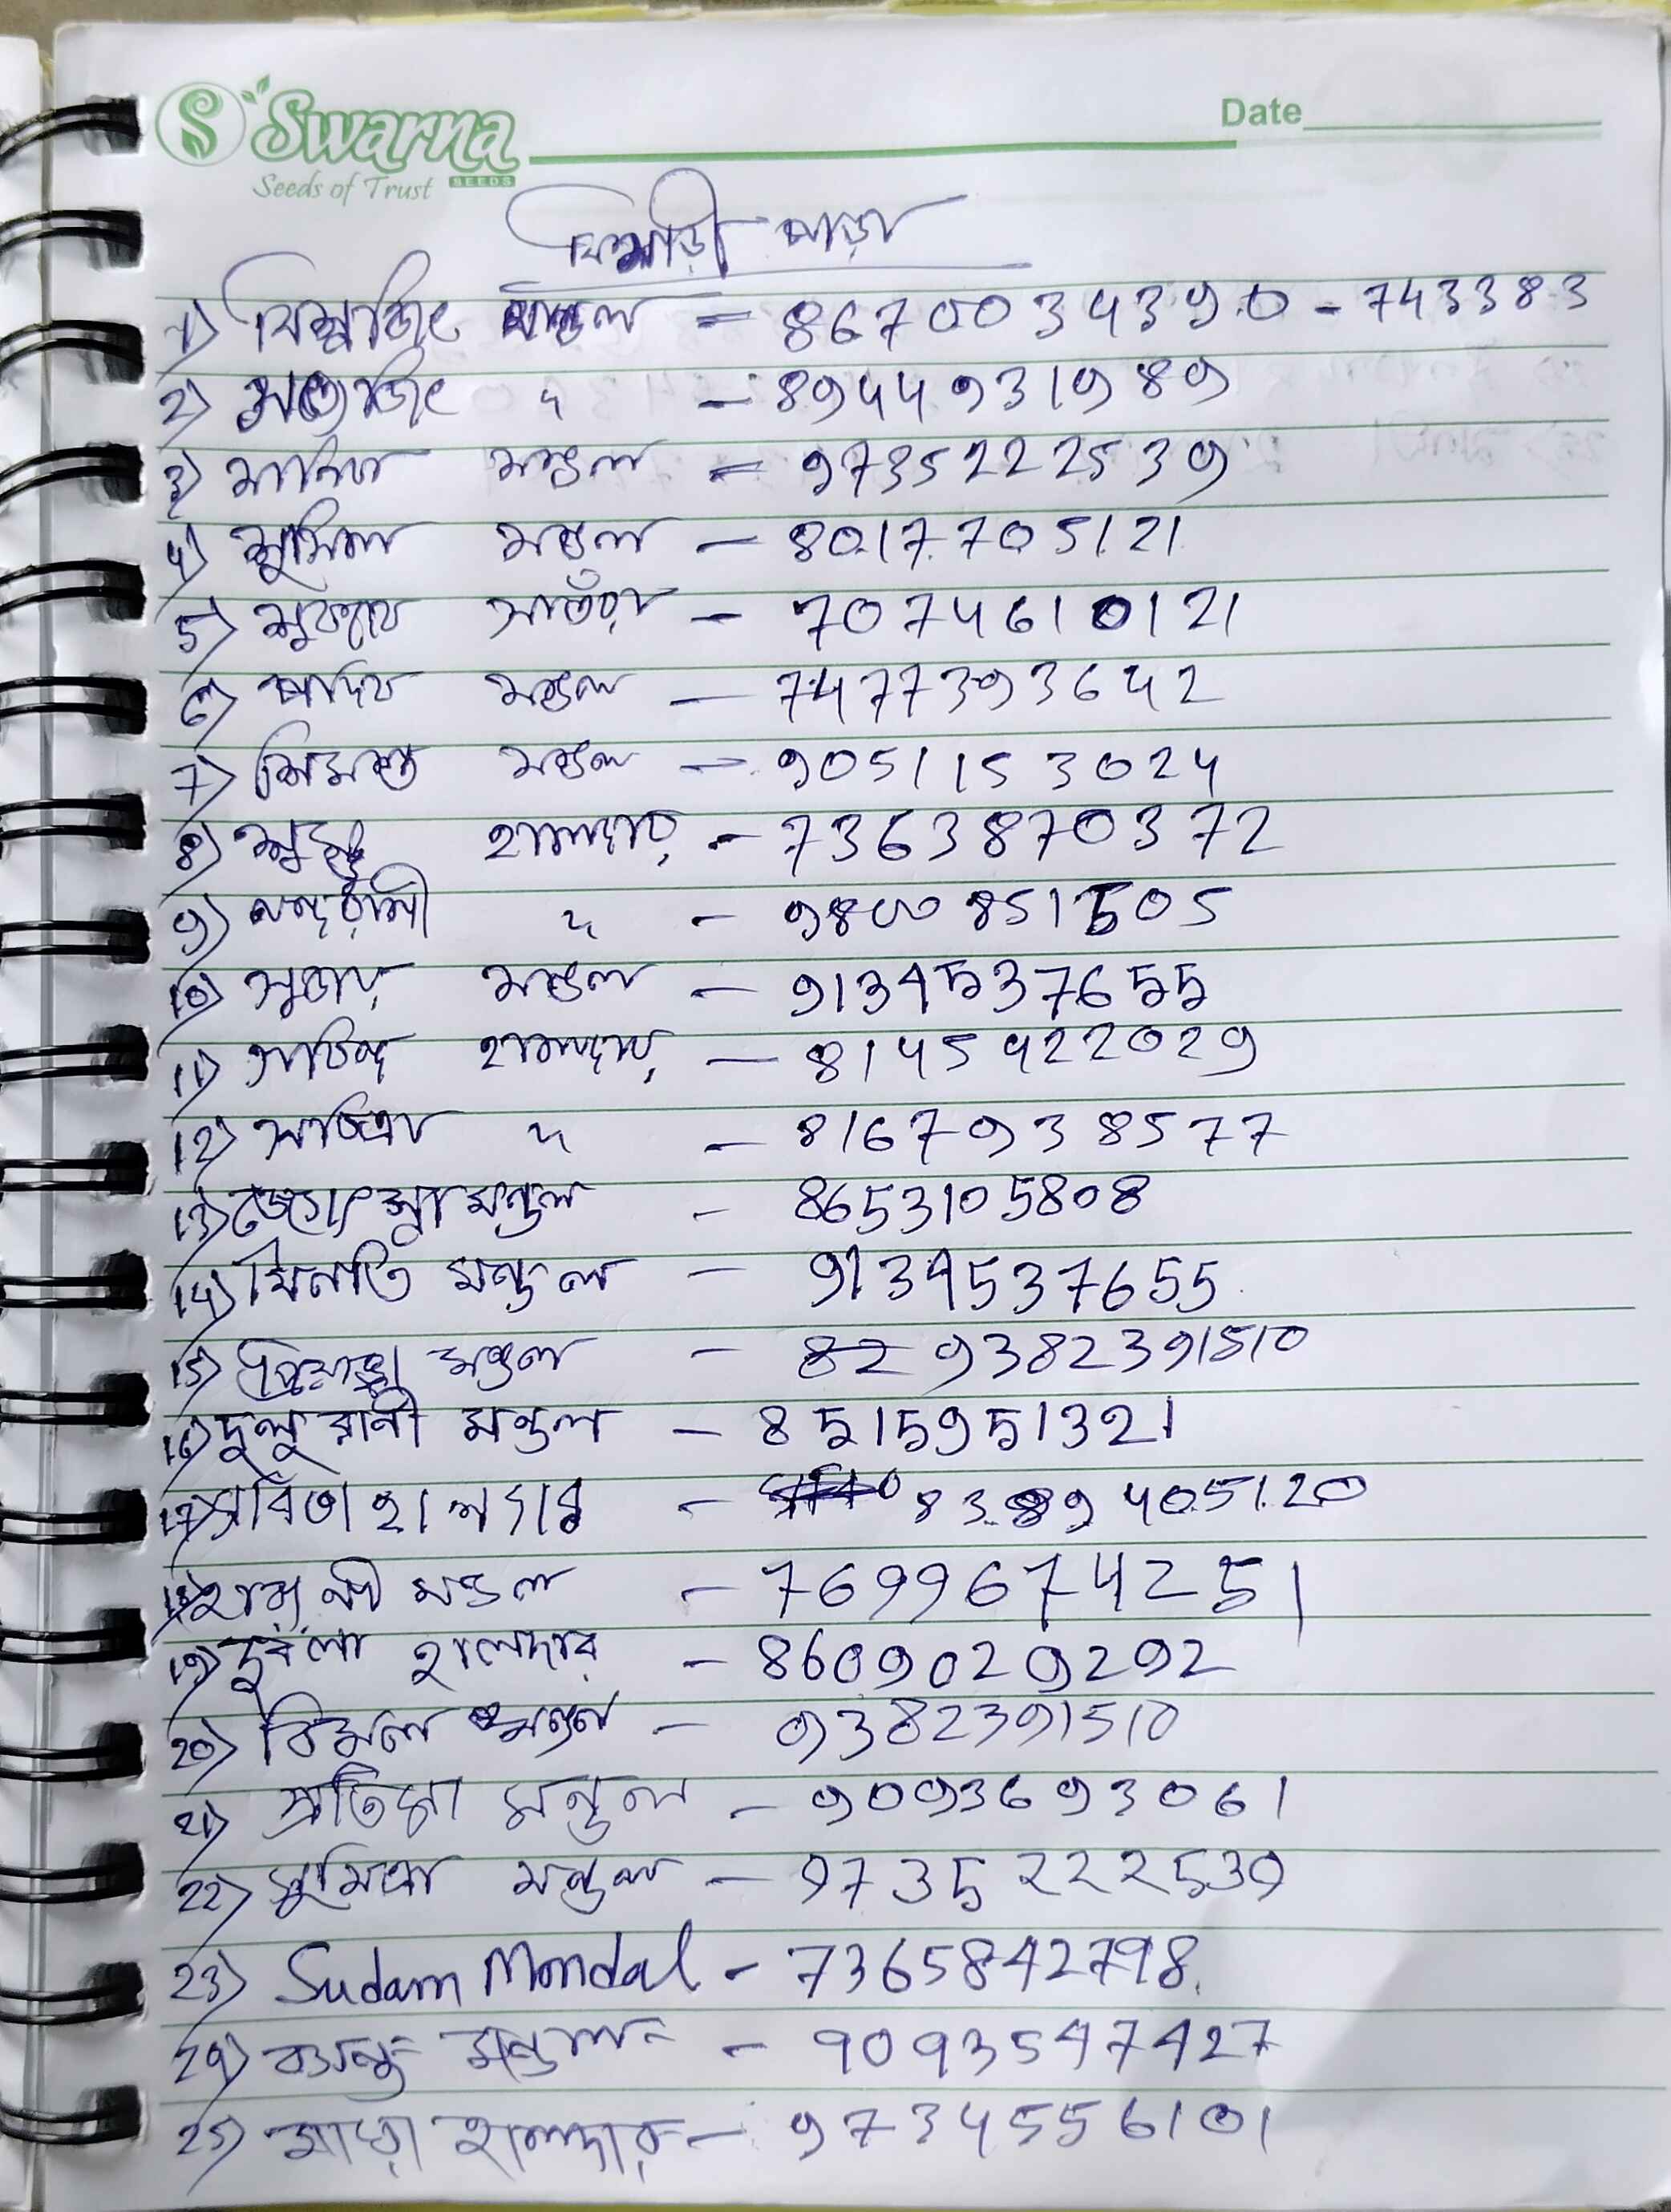 Swarna
Seeds of Trust SEEDS
Date
পাড়া
1) বিশ্বজিৎ মন্ডল = 8670034390 - 743383
2) জিৎ " - 8944931989
3) মানিক মন্ডল = 9735222539
4) সুনিল মন্ডল - 8017705121
5) সাতঁরা - 7074610121
6) মন্ডল - 7477393642
7) শ্রিমন্ত মন্ডল - 9051153024
8) হালদার - 7363870372
9) " - 9800851505
10) মন্ডল - 9134537655
11) হালদার - 8145422029
12) " - 8167938577
13) জোৎস্না মন্ডল - 8653105808
14) মিনতি মন্ডল - 9134537655
15) মন্ডল - 82 9382391510
16) দুলু রানী মন্ডল - 8515951321
17) সবিতা হালদার - 8389405120
18) মন্ডল - 7699674251
19) হালদার - 8609029292
20) বিমল মন্ডল - 9382391510
21) প্রতিমা মন্ডল - 9093693061
22) সুমিত্রা মন্ডল - 9735222539
23) Sudam Mondal - 7365842798
24) মন্ডল - 9093547427
25) হালদার - 9734556101